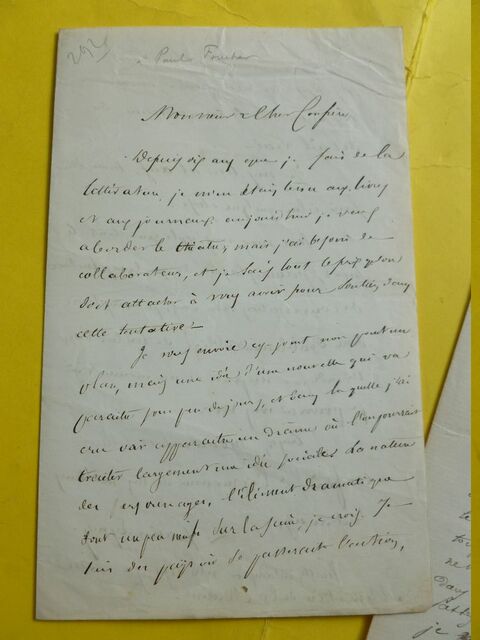 292
à Paul Foucher
Monsieur & Cher Confrère
Depuis dix ans que je fais de la
littérature, je m'en étais tenu aux livres
et aux journaux, aujourd'hui je veux
aborder le théatre, mais j'ai besoin de
collaborateur, et je sais tout le prix qu'on
doit attacher à vous avoir pour soutien dans
cette tentative -
Je vous envoie ci-joint non point un
plan, mais une idée d'une nouvelle qui va
paraitre sous peu de jours, et dans laquelle j'ai
cru voir apparaitre un drame où l'on pourrait
traiter largement une idée sociale. La nature
des personnages, l'élément dramatique
sont un peu sur la fin, je crois. Je
suis du pays où se passerait l'action,